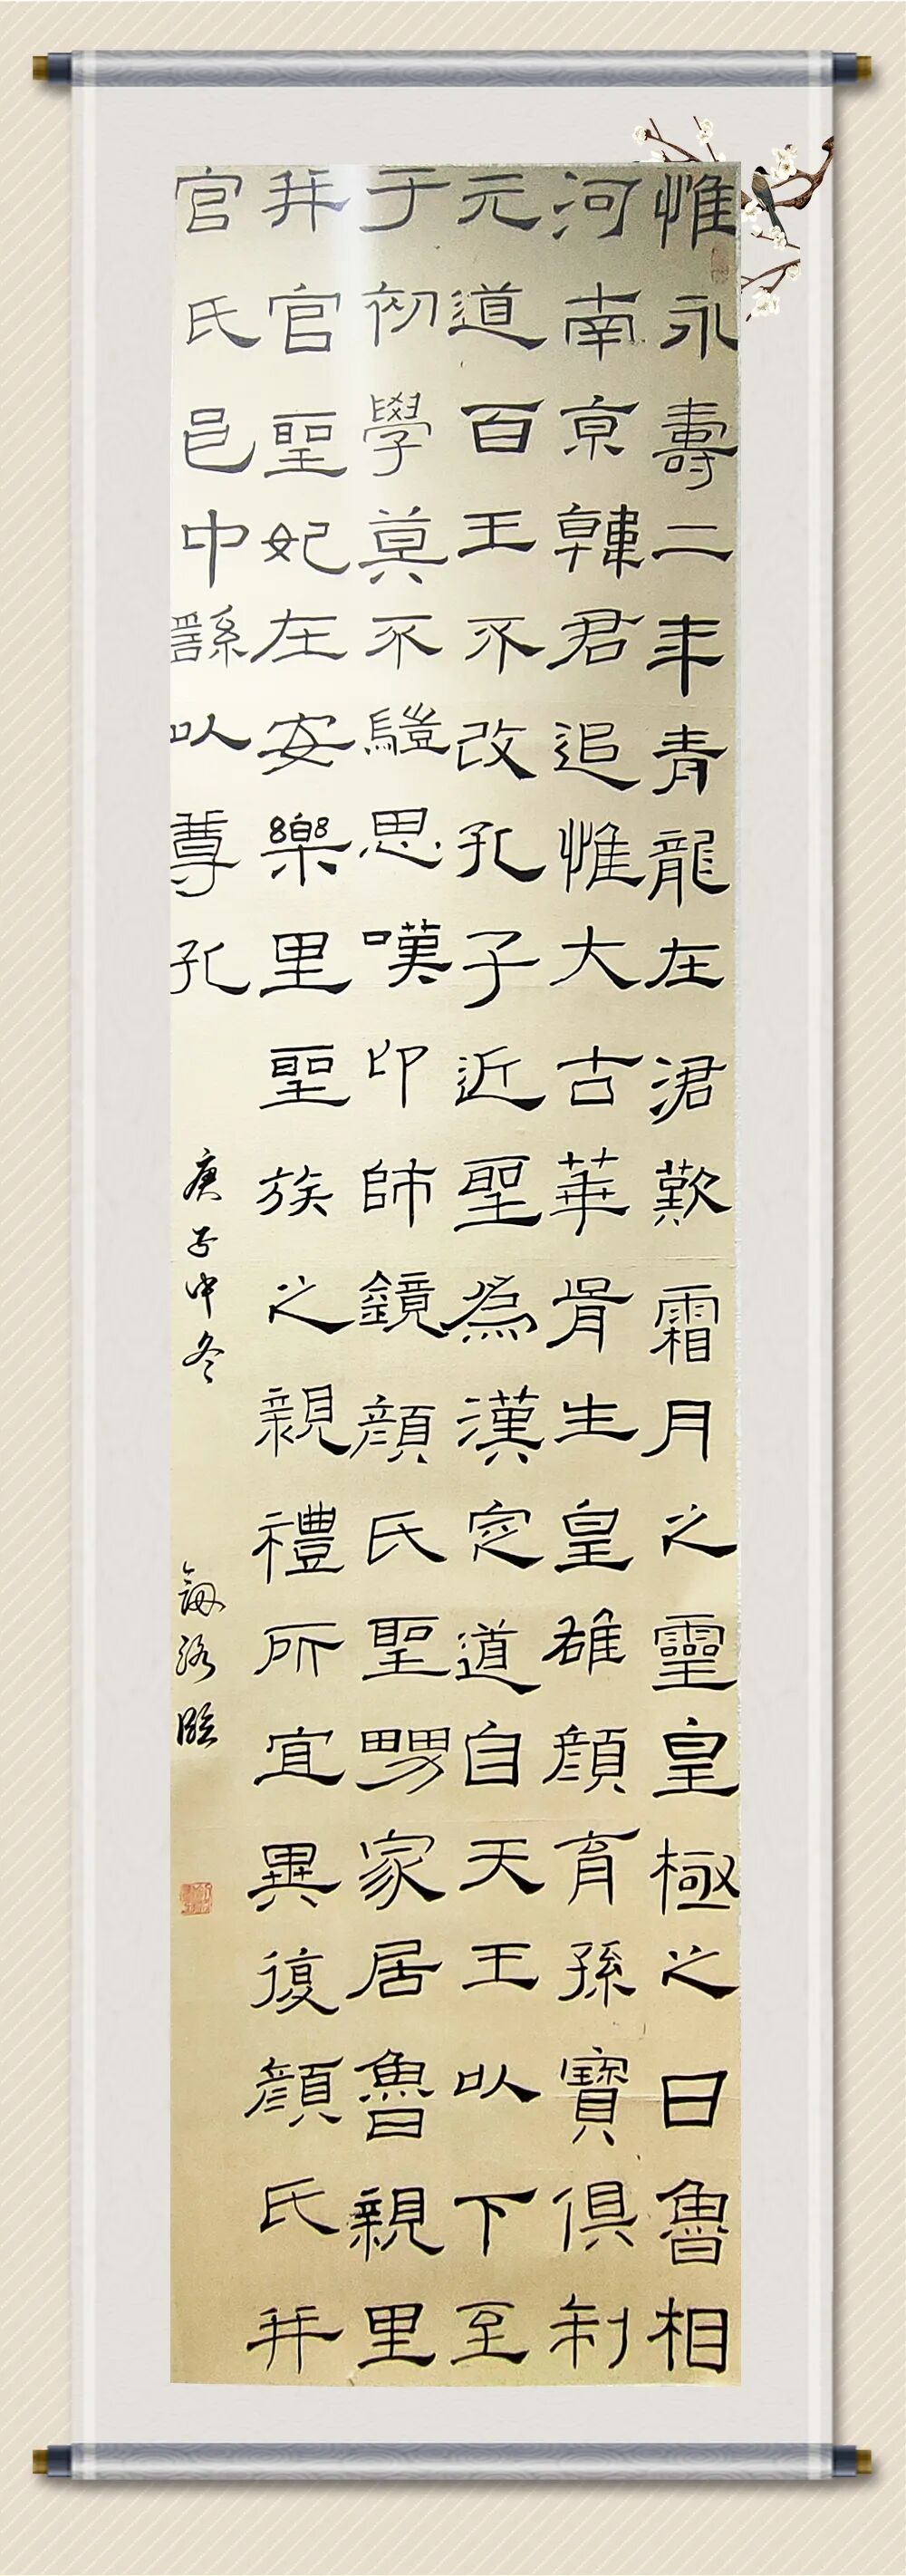 惟永壽二年青龍在涒歎霜月之靈皇極之日魯相
河南京韓君追惟大古華胥生皇雄顏育孫寶俱制
元道百王不改孔子近聖為漢定道自天王以下至
于初學莫不驥思嘆卬師鏡顏氏聖舅家居魯親里
并官聖妃在安樂里聖族之親禮所宜異復顏氏并
官氏邑中繇以尊孔
庚子中冬
臨